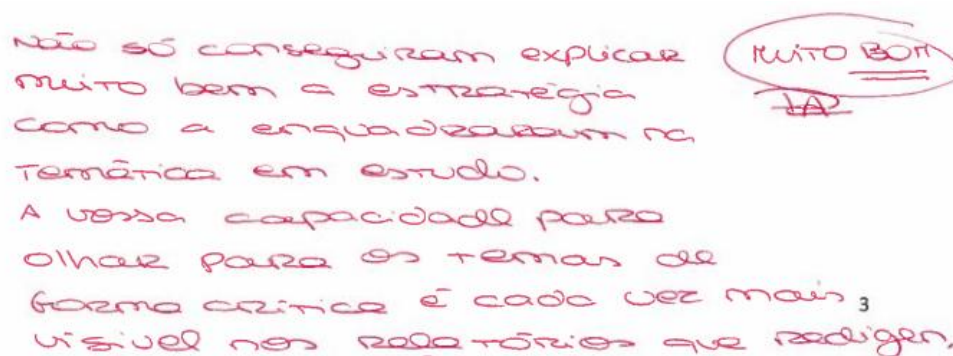 Não só conseguiram explicar
muito bem a estratégia
como a enquadraram na
temática em estudo.
A vossa capacidade para
olhar para os temas de
forma crítica é cada vez mais
visível nos relatórios que redigem.
MUITO BOM
3